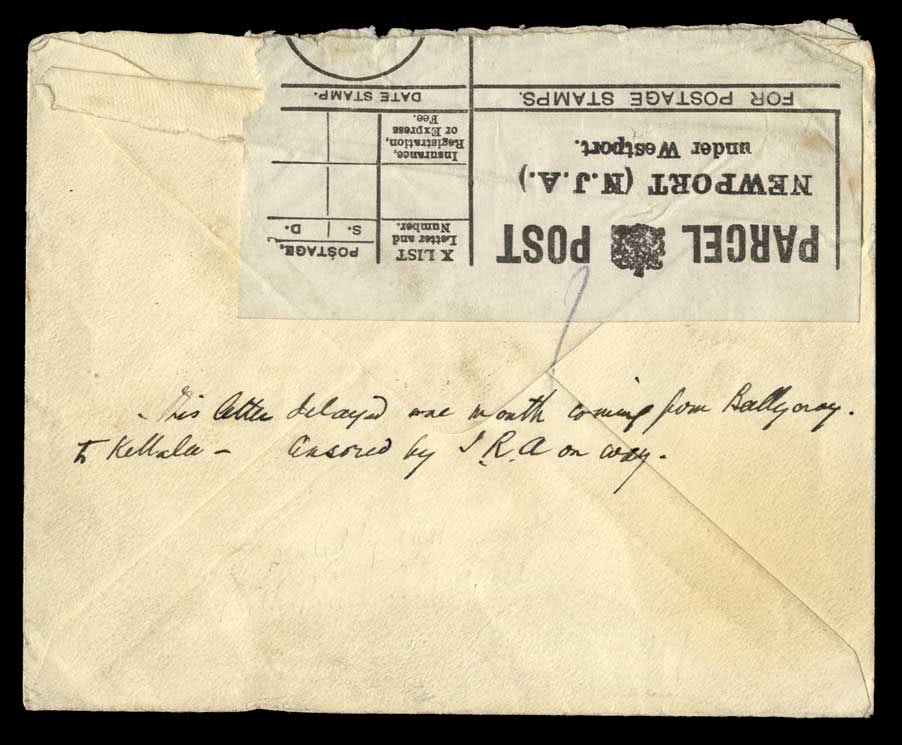 PARCEL POST
NEWPORT (N.J.A.)
under Westport.
FOR POSTAGE STAMPS.
X LIST
Letter and
Number.
POSTAGE.
S. D.
Insurance,
Registration,
or Express
Fee.
DATE STAMP.
This letter delayed one month coming from Ballycroy.
to Killala – Censored by I.R.A on way.